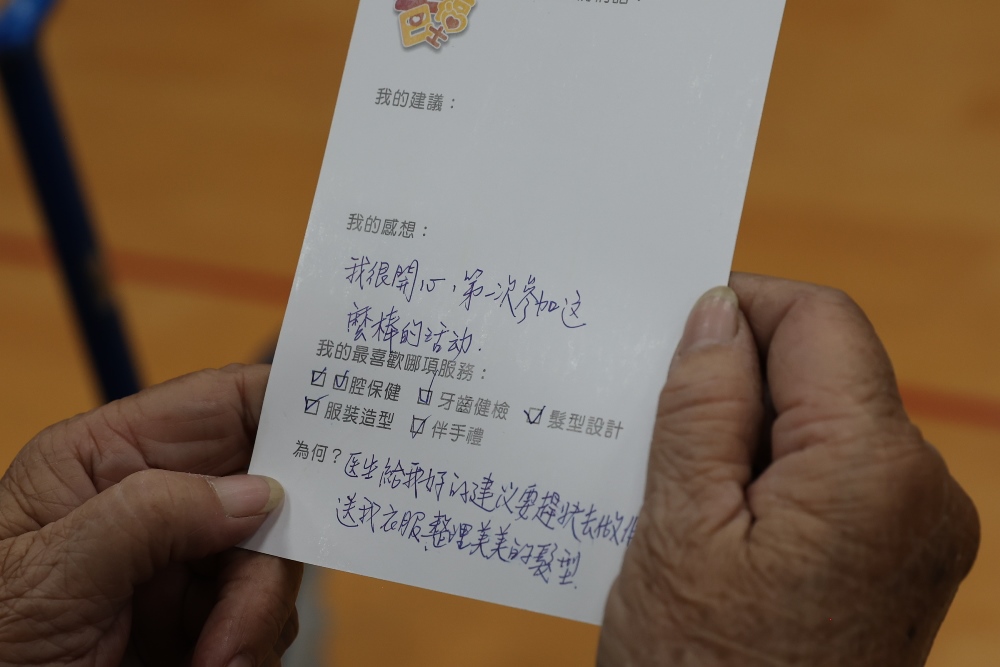 我的建議：
我的感想：
我很開心，第一次參加这
麼棒的活动.
我的最喜歡哪項服務：
☑口腔保健 ☑牙齒健檢 ☑髮型設計
☑服裝造型 ☑伴手禮
為何？医生給我好的建议要趕快去做
送我衣服.整理美美的髮型.